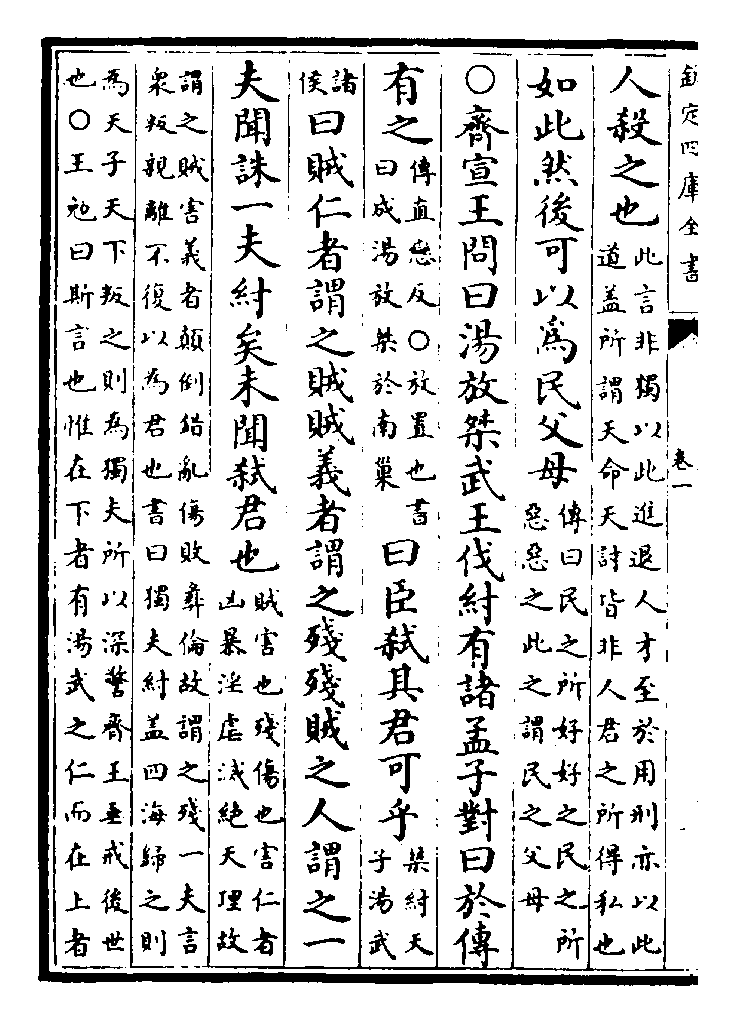 欽定四庫全書
卷一
人殺之也
此言非獨以此進退人才至於用刑亦以此
道盖所謂天命天討皆非人君之所得私也
如此然後可以為民父母
傳曰民之所好好之民之所
惡惡之此之謂民之父母
○齊宣王問曰湯放桀武王伐紂有諸孟子對曰於傳
有之
傳直戀反○放置也書
曰成湯放桀於南巢
曰臣弑其君可乎
桀紂天
子湯武
諸
侯
曰賊仁者謂之賊賊義者謂之殘殘賊之人謂之一
夫聞誅一夫紂矣未聞弑君也
賊害也殘傷也害仁者
凶暴淫虐滅絶天理故
謂之賊害義者顛倒錯亂傷敗彝倫故謂之殘一夫言
衆叛親離不復以為君也書曰獨夫紂盖四海歸之則
為天子天下叛之則為獨夫所以深警齊王垂戒後世
也○王勉曰斯言也惟在下者有湯武之仁而在上者